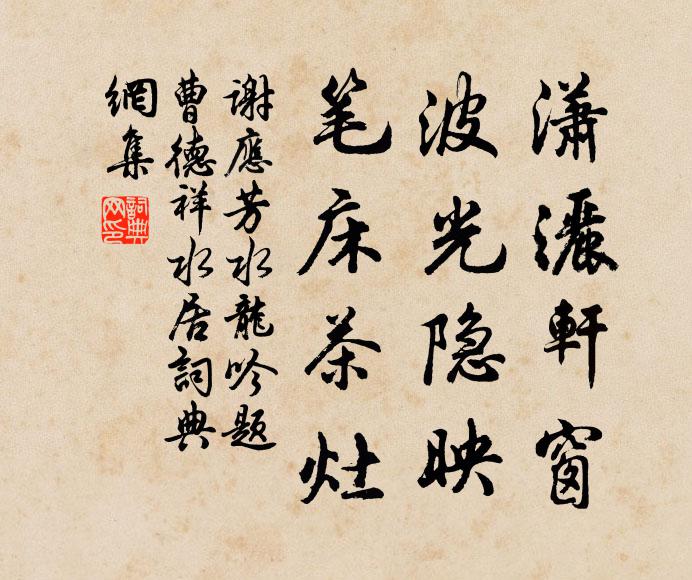 潇灑軒窗
波光隐映
笔床茶灶
谢應芳水龍吟题
曹德祥水居詞典
網集
詞典
网印